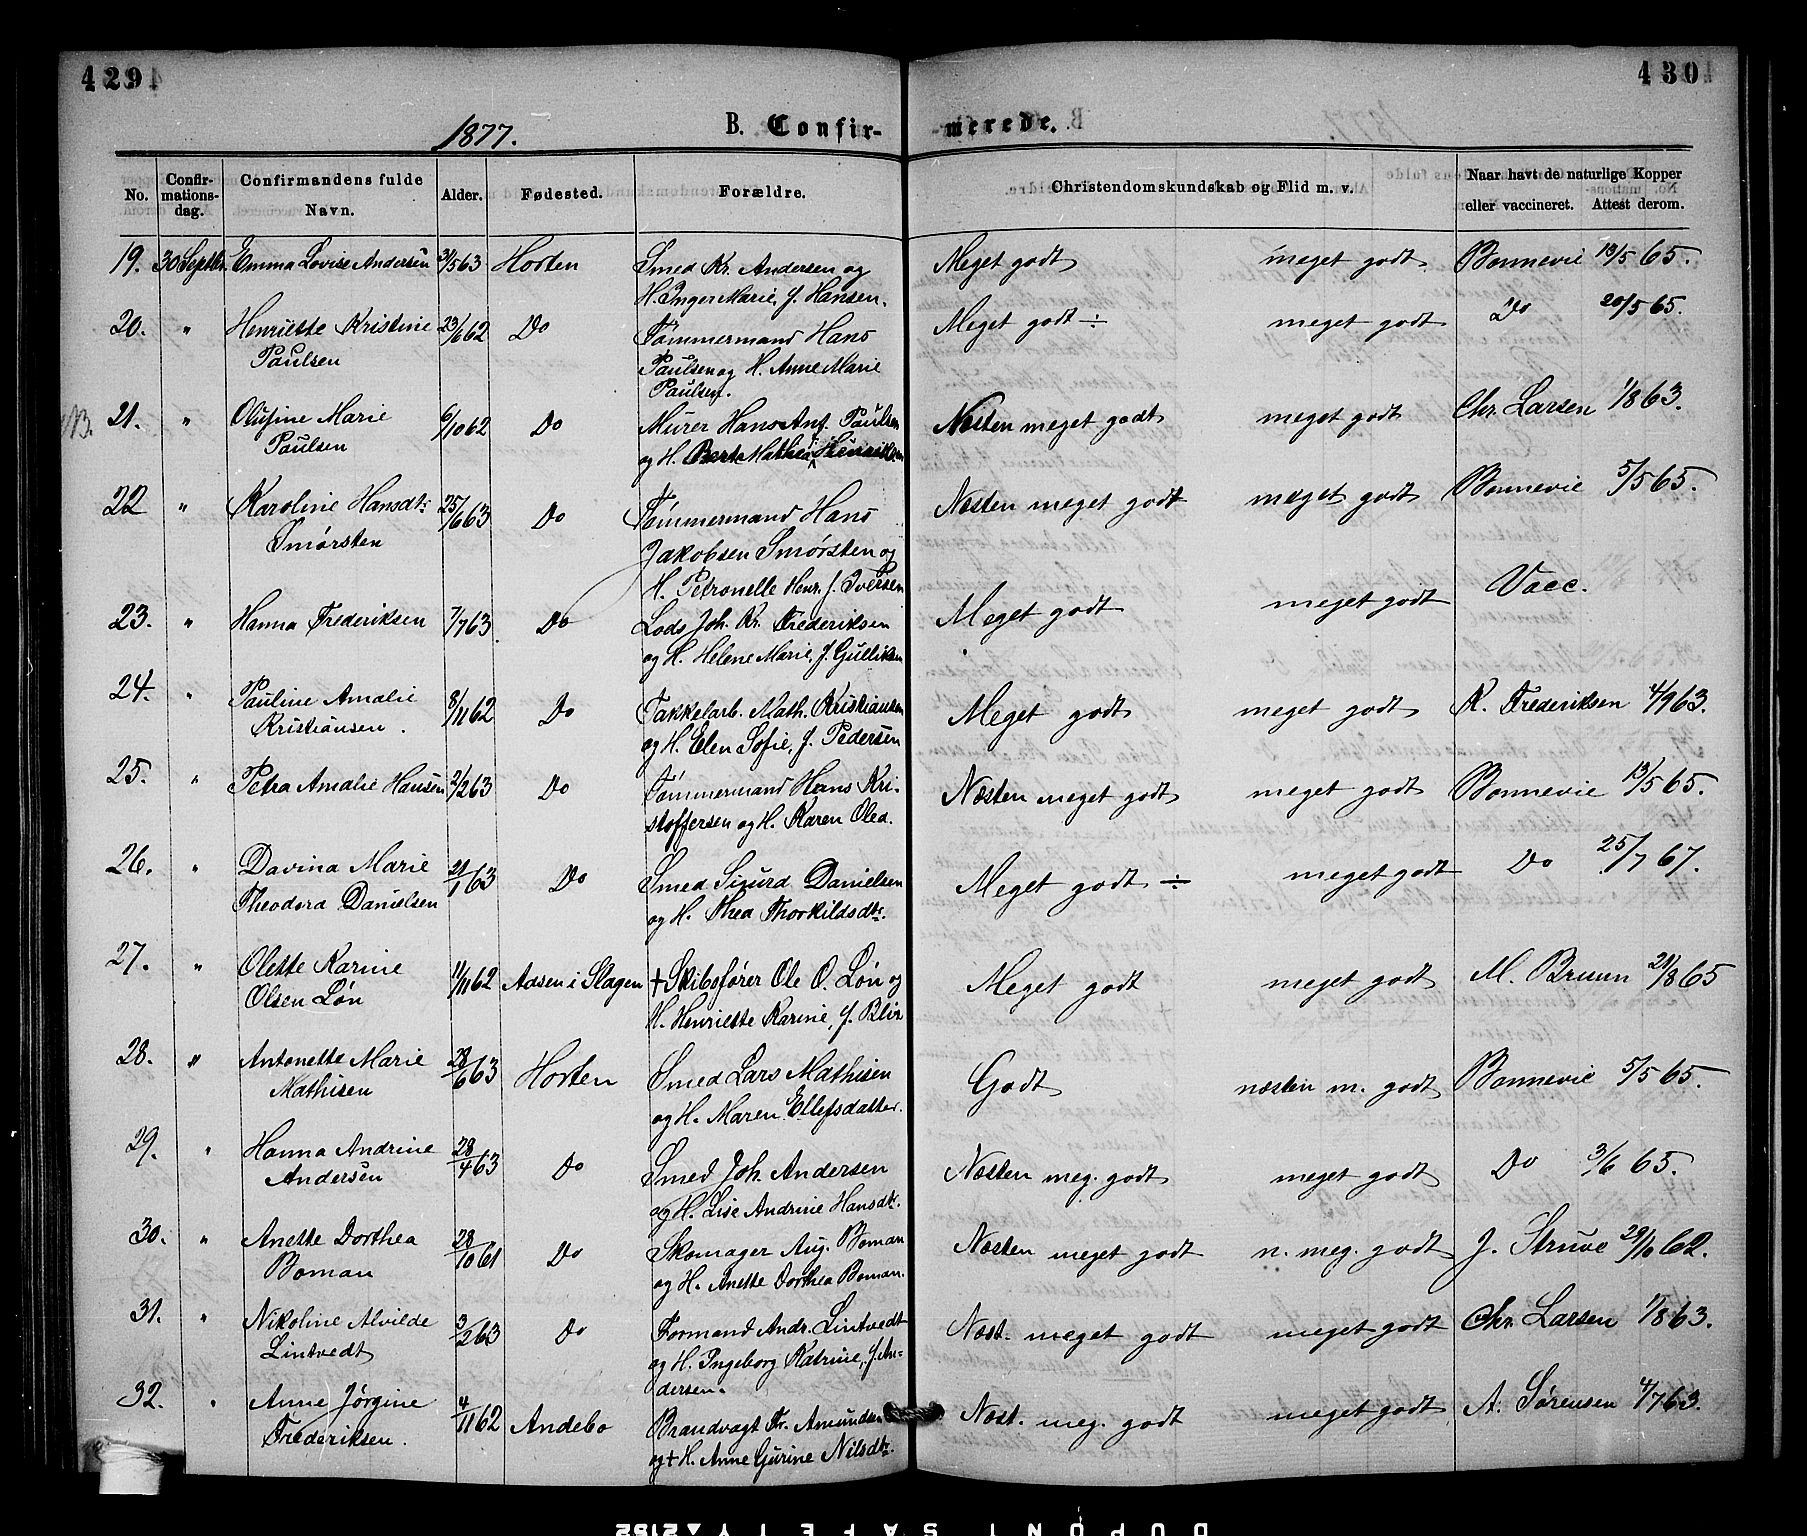 429
430
1877.
B. Confir-
merede.
No.
Confir-
mations-
dag.
Confirmandens fulde
Navn.
Alder.
Fødested.
Forældre.
Christendomskundskab og Flid m. v.
Naar havt de naturlige Kopper
eller vaccineret. Attest derom.
19. 30 Septbr. Emma Lovise Andersen 31/5 63 Horten Smed Kr. Andersen og Meget godt meget godt. Bonnevie 13/5 65.
H. Inger Marie, f. Hansen.
20. " Henriette Kristine 23/6 62 Do Tømmermand Hans Meget godt ÷ meget godt Do 20/5 65.
Paulsen Paulsen og H. Anne Marie
Paulsen.
NB. 21. " Olufine Marie 6/10 62 Do Murer Hans Ant. Paulsen Næsten meget godt meget godt Chr. Larsen 1/8 63.
Paulsen og H. Berte Mathea Henriksen
22 " Karoline Hansdtr 25/6 63 Do Tømmermand Hans Næsten meget godt meget godt Bonnevie 5/5 65.
Smørsten Jakobsen Smørsten og
H. Petronelle Henr. f. Iversen
23. " Hanna Frederiksen 7/7 63 Do Lods Joh. Kr. Frederiksen Meget godt meget godt Vacc.
og H. Helene Marie, f. Gulliksen
24. " Pauline Amalie 8/11 62 Do Takkelarb. Math. Kristiansen Meget godt meget godt K. Frederiksen 4/9 63.
Kristiansen. og H. Elen Sofie, f. Pedersen
25. " Petra Amalie Hansen 2/2 63 Do Tømmermand Hans Kri- Næsten meget godt meget godt Bonnevie 13/5 65.
stoffersen og H. Karen Olea.
26. " Davina Marie 21/1 63 Do Smed Sigurd Danielsen Meget godt ÷ meget godt Do 25/7 67.
Theodora Danielsen og H. Thea Thorkildsdtr.
27. " Olette Karine 11/11 62 Aasen i Slagen + Skibsfører Ole O. Løn og Meget godt meget godt M. Bruun 21/8 65
Olsen Løn H. Henriette Karine, f. Blix
28. " Antonette Marie 28/6 63 Horten Smed Lars Mathisen Godt næsten m. godt Bonnevie 5/5 65.
Mathisen og H. Maren Ellefsdatter.
29. " Hanna Andrine 28/4 63 Do Smed Joh. Andersen Næsten meg. godt meget godt Do 3/6 65.
Andersen og H. Lise Andrine Hansdtr.
30. " Anette Dorthea 28/10 61 Do Skomager Aug. Boman Næsten meget godt n. meg. godt J. Struve 29/10 62.
Boman og H. Anette Dorthea Boman.
31. " Nikoline Alvilde 3/2 63 Do Formand Andr. Lintvedt Næst. meget godt meget godt Chr. Larsen 1/8 63.
Lintvedt og H. Ingeborg Katrine, f. An-
dersen.
32. " Anne Jørgine 4/11 62 Andebo Brandvagt Fr. Amundsen Næst. meg. godt meget godt A. Sørensen 4/7 63.
Frederiksen. og + H. Anne Gurine Nilsdtr.